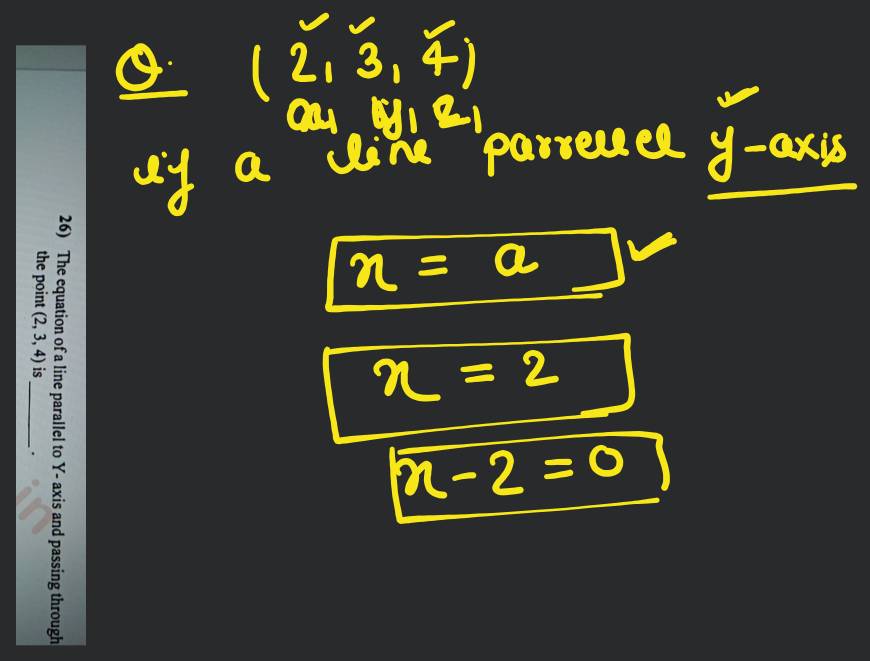 Q. (2, 3, 4)
x1 y1 z1
if a line parrellel y-axis
x = a
x = 2
x - 2 = 0
26) The equation of a line parallel to Y- axis and passing through
the point (2, 3, 4) is ________.
in